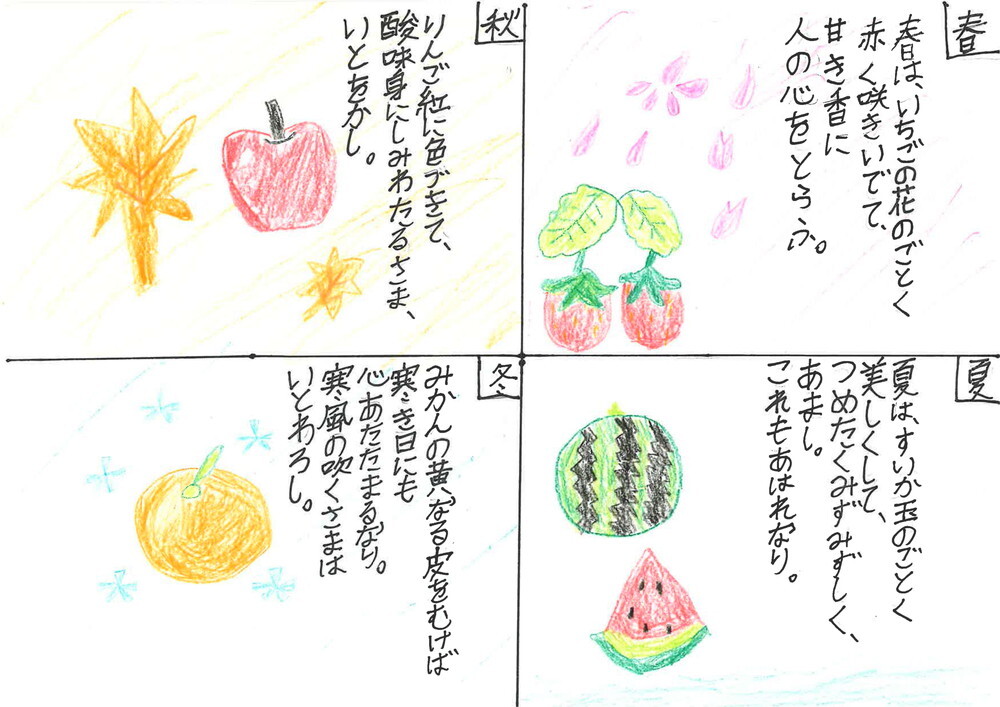 春
春は、いちごの花のごとく
赤く咲きいでて、
甘き香に
人の心をとらふ。
夏
夏は、すいか玉のごとく
美しくして、
つめたくみずみずしく、
あまし。
これもあはれなり。
秋
りんご紅に色づきて、
酸味身にしみわたるさま、
いとをかし。
冬
みかんの黄なる皮をむけば
寒き日にも
心あたたまるなり。
寒風の吹くさまは
いとわろし。